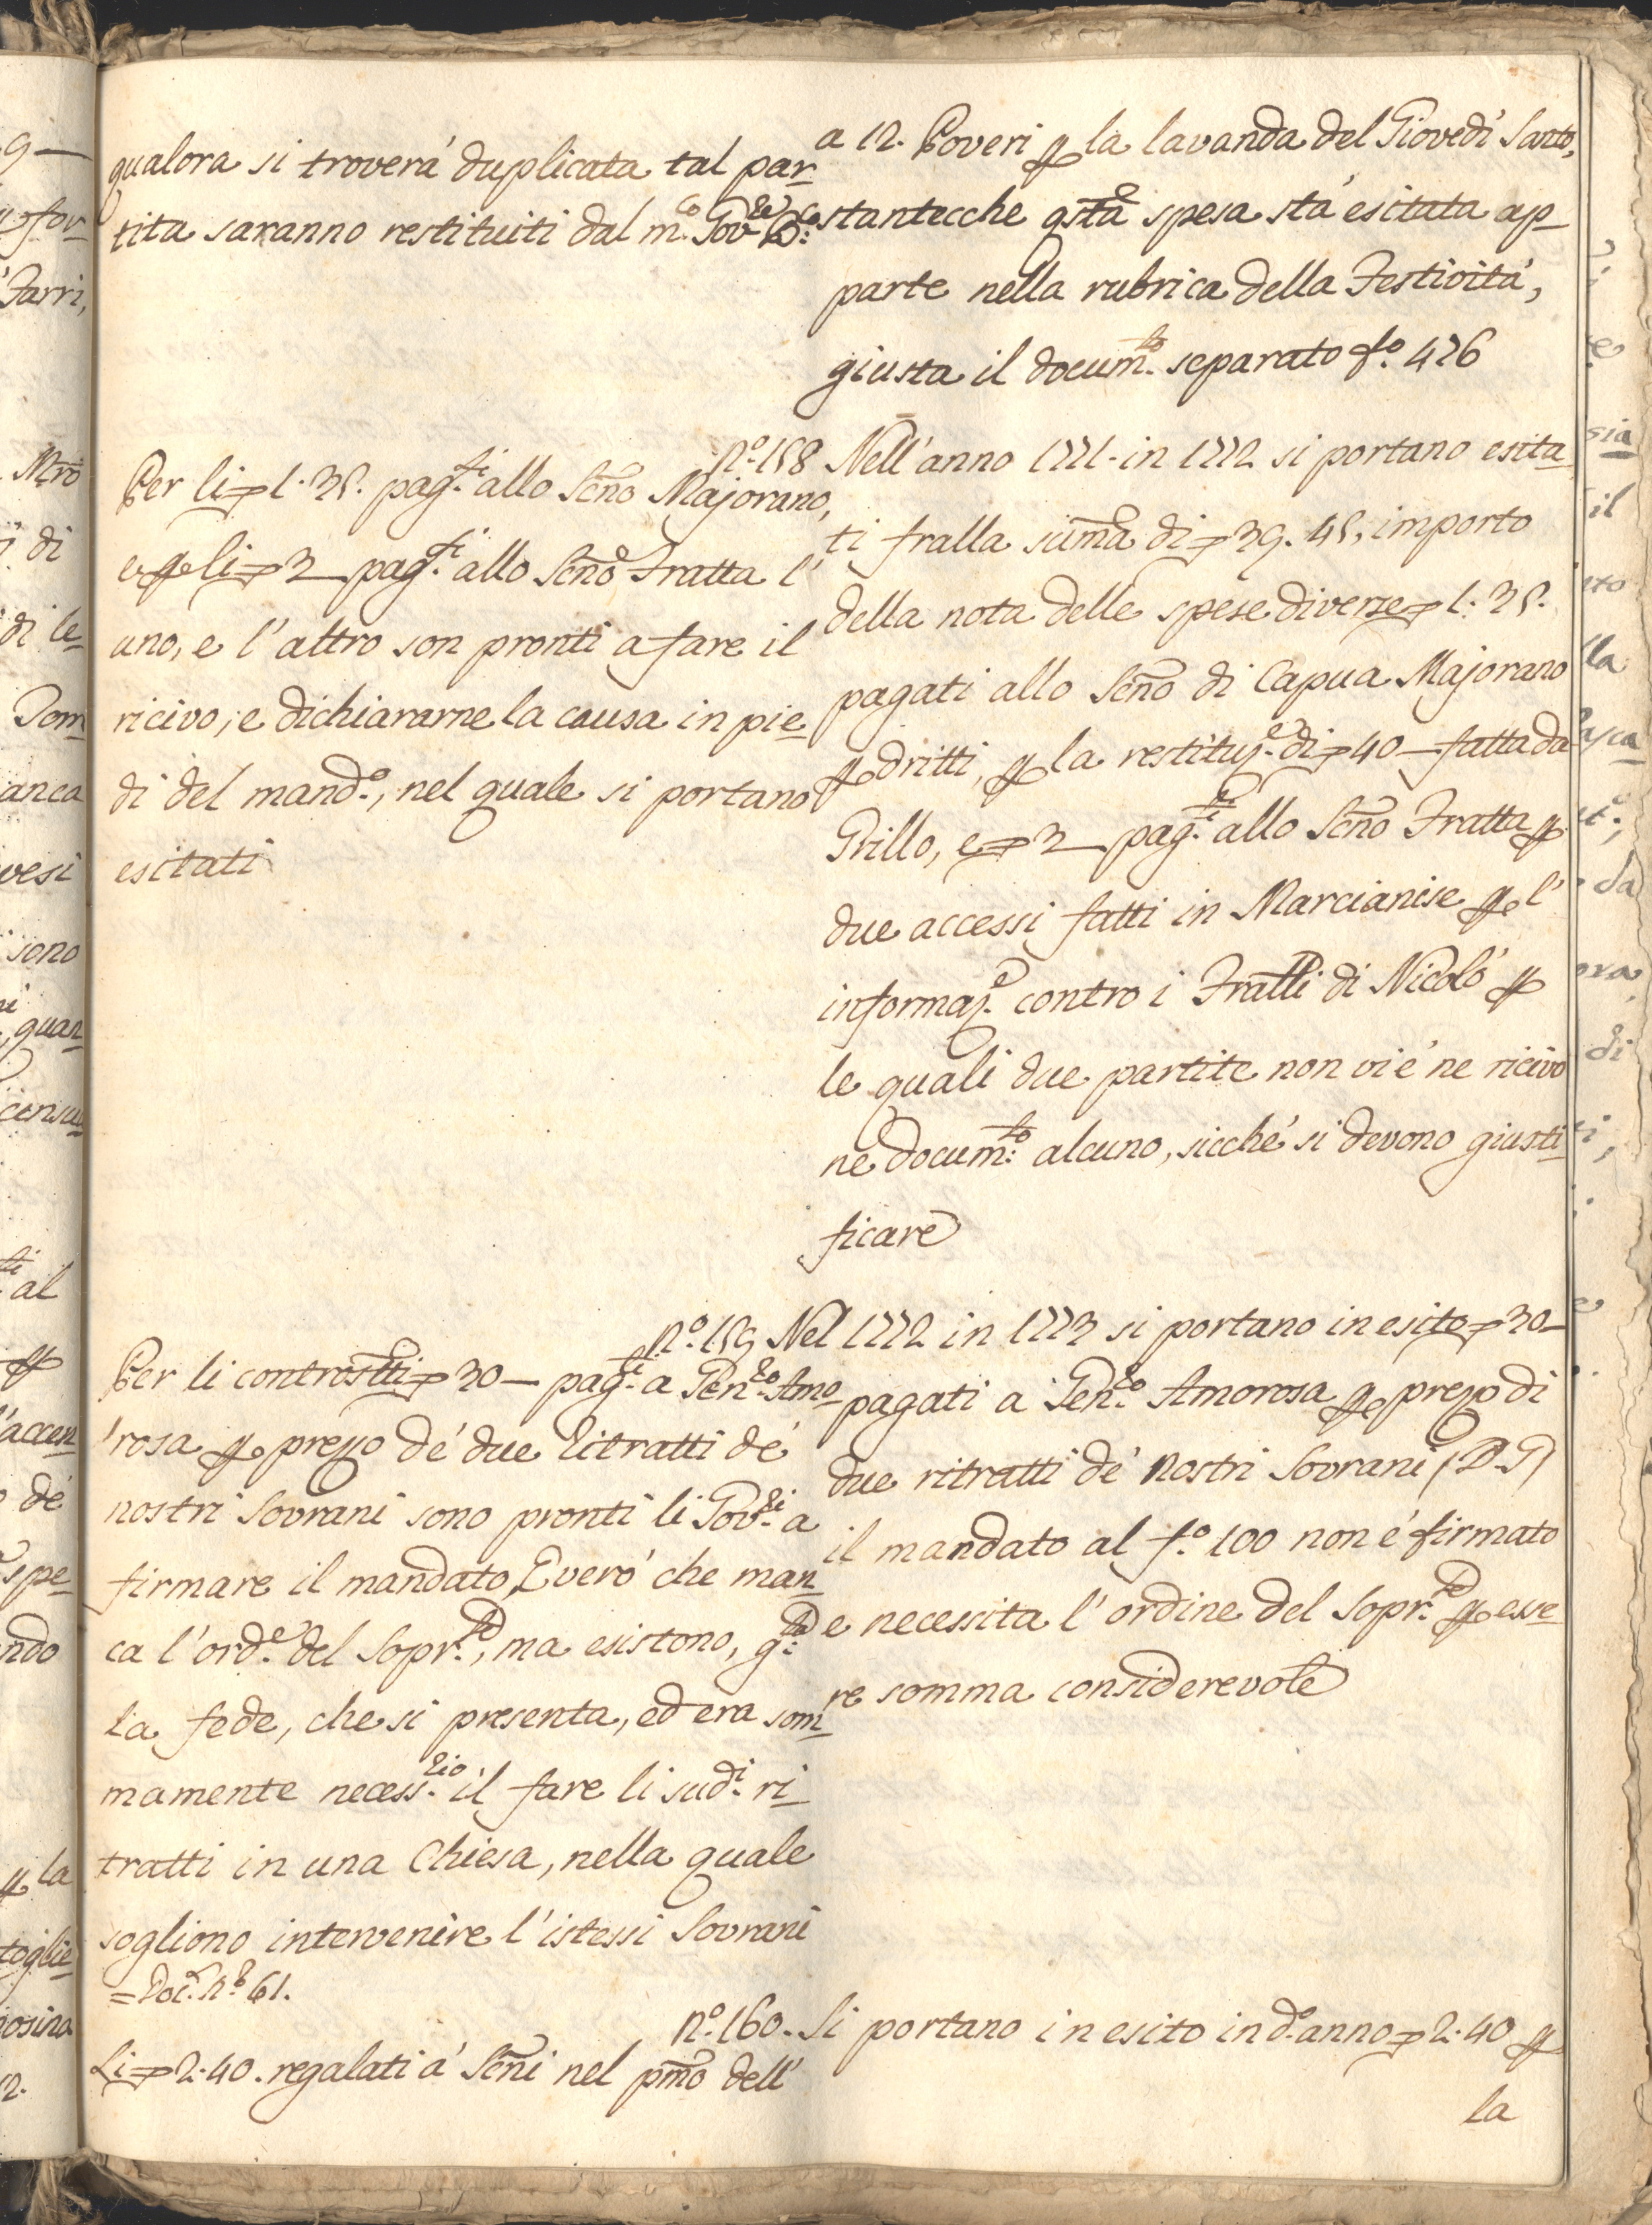 qualora si troverá duplicata tal par-
tita saranno restituiti dal m.co Gov.re
a 12. Poveri p la lavanda del Giovedí Santo,
stantecche qsta spesa stá esitata ap-
parte nella rubrica della Festività,
giusta il docum.to separato f.o 476
Per li 1. 35. pag.ti allo Scno Majorano,
e p li 3 — pag.ti allo Scno Fratta l'
uno, e l'altro son pronti a fare il
ricivo, e dichiararne la causa in pie-
di del mand.o, nel quale si portano
esitati
n.o 158 Nell'anno 1771. in 1772 si portano esita-
ti fralla suma di 39. 45, importo
della nota delle spese diverse 1: 35.
pagati allo Scno di Capua Majorano
p dritti, p la restituz.e di 40 — fatta da
Grillo, e 3 — pag.ti allo Scno Fratta p
due accessi fatti in Marcianise p l'
informaz.e contro i Fratlli di Nicoló p
le quali due partite non vi é ne ricivo
ne docum.to alcuno, sicché si devono giusti-
ficare
Per li controstti 30 — pag.ti a Gen.ro Amo-
rosa p prezzo dé due Ritratti dé
nostri Sovrani sono pronti li Gov.ri a
firmare il mandato, É veró che man-
ca l'ord.e del Sopr.te, ma esistono, g.ta
la fede, che si presenta, ed era som-
mamente necess.rio il fare li sud.i ri-
tratti in una Chiesa, nella quale
sogliono intervenire l'istessi Sovrani
= Doc. n.o 61.
n.o 159 Nel 1772 in 1773 si portano in esito 30 —
pagati a Gen.ro Amorosa p prezzo di
due ritratti dé Nostri Sovrani (D. G)
il mandato al f.o 100 non é firmato
e necessita l'ordine del Sopr.te p esse-
re somma considerevole
Li 2. 40. regalati á Scni nel pmo dell'
n.o 160. Si portano in esito in d.o anno 2. 40 p
la